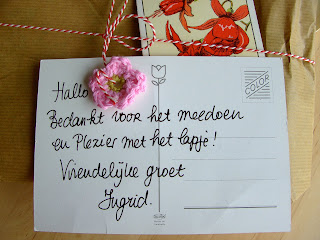 Hallo
Bedankt voor het meedoen
en Plezier met het lapje!
Vriendelijke groet
Ingrid.
COLOR